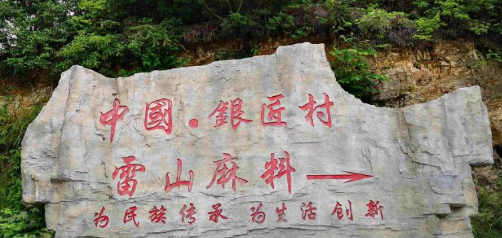 中國·銀匠村
雷山麻料
为民族传承 为生活创新